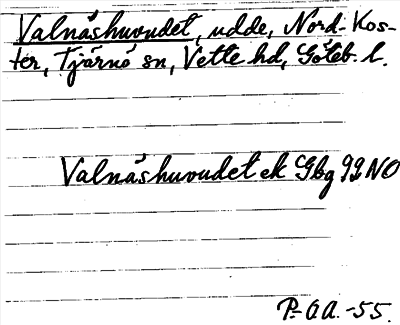 Valnäshuvudet, udde, Nord-Kos-
ter, Tjärnö sn, Vette hd, Göteb. l.
Valnäshuvudet ek Gbg 99 NO
P-OA.-55.